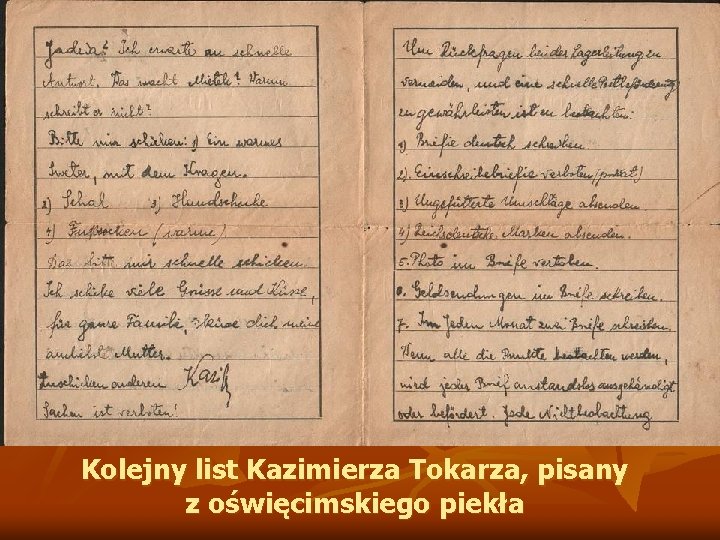 Jadzia? Ich erwarte an schnelle
Antwort. Was macht Mietek? Warum
schreibt er nicht?
Bitte mir schicken: 1) Ein warmes
Sweter, mit dem Kragen.
2) Schal 3) Handschuhe
4) Fußsocken (warme)
Das bitte mir schnelle schicken.
Ich schicke viele Grüsse und Küsse,
für ganze Familie, küsse dich meine
Mutter.
anderen Kazik
Sachen ist verboten!
Um Rückfragen bei der Lagerleitung zu
vermeiden, und eine schnelle Postbeförderung
zu gewährleisten ist zu beachten:
1) Briefe deutsch schreiben
2). Einschreibebriefe verboten
3) Ungefütterte Umschläge absenden
4) Reichsdeutsche Marken absenden.
5. Photo im Briefe verboten.
6. Geldsendungen im Briefe schreiben.
7. Im Jeden Monat zwei Briefe schreiben.
Wenn alle die Punkte beachten werden,
wird jedes Brief anstandslos ausgehändigt
oder befördert. Jede Nichtbeobachtung
Kolejny list Kazimierza Tokarza, pisany
z oświęcimskiego piekła